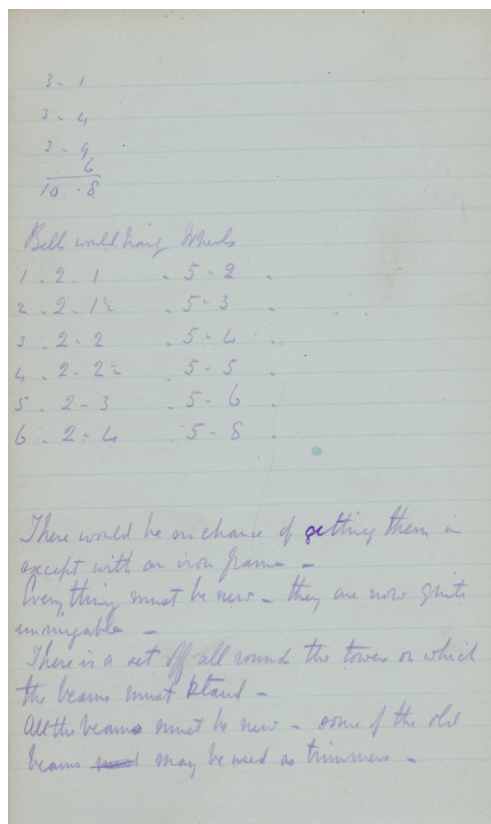 3 - 1
3 - 4
3 - 9
6
10 . 8
Bells would hang Wheels
1 . 2 . 1 . 5 - 2 .
2 . 2 . 1½ . 5 - 3 .
3 . 2 - 2 . 5 - 4 .
4 . 2 - 2½ . 5 - 5 .
5 . 2 - 3 . 5 - 6 .
6 . 2 - 4 . 5 - 8 .
There would be no chance of getting them in
except with an iron frame -
Everything must be new - they are now quite
unringable -
There is a set off all round the tower on which
the beams must stand -
All the beams must be new - some of the old
beams may be used as trimmers -